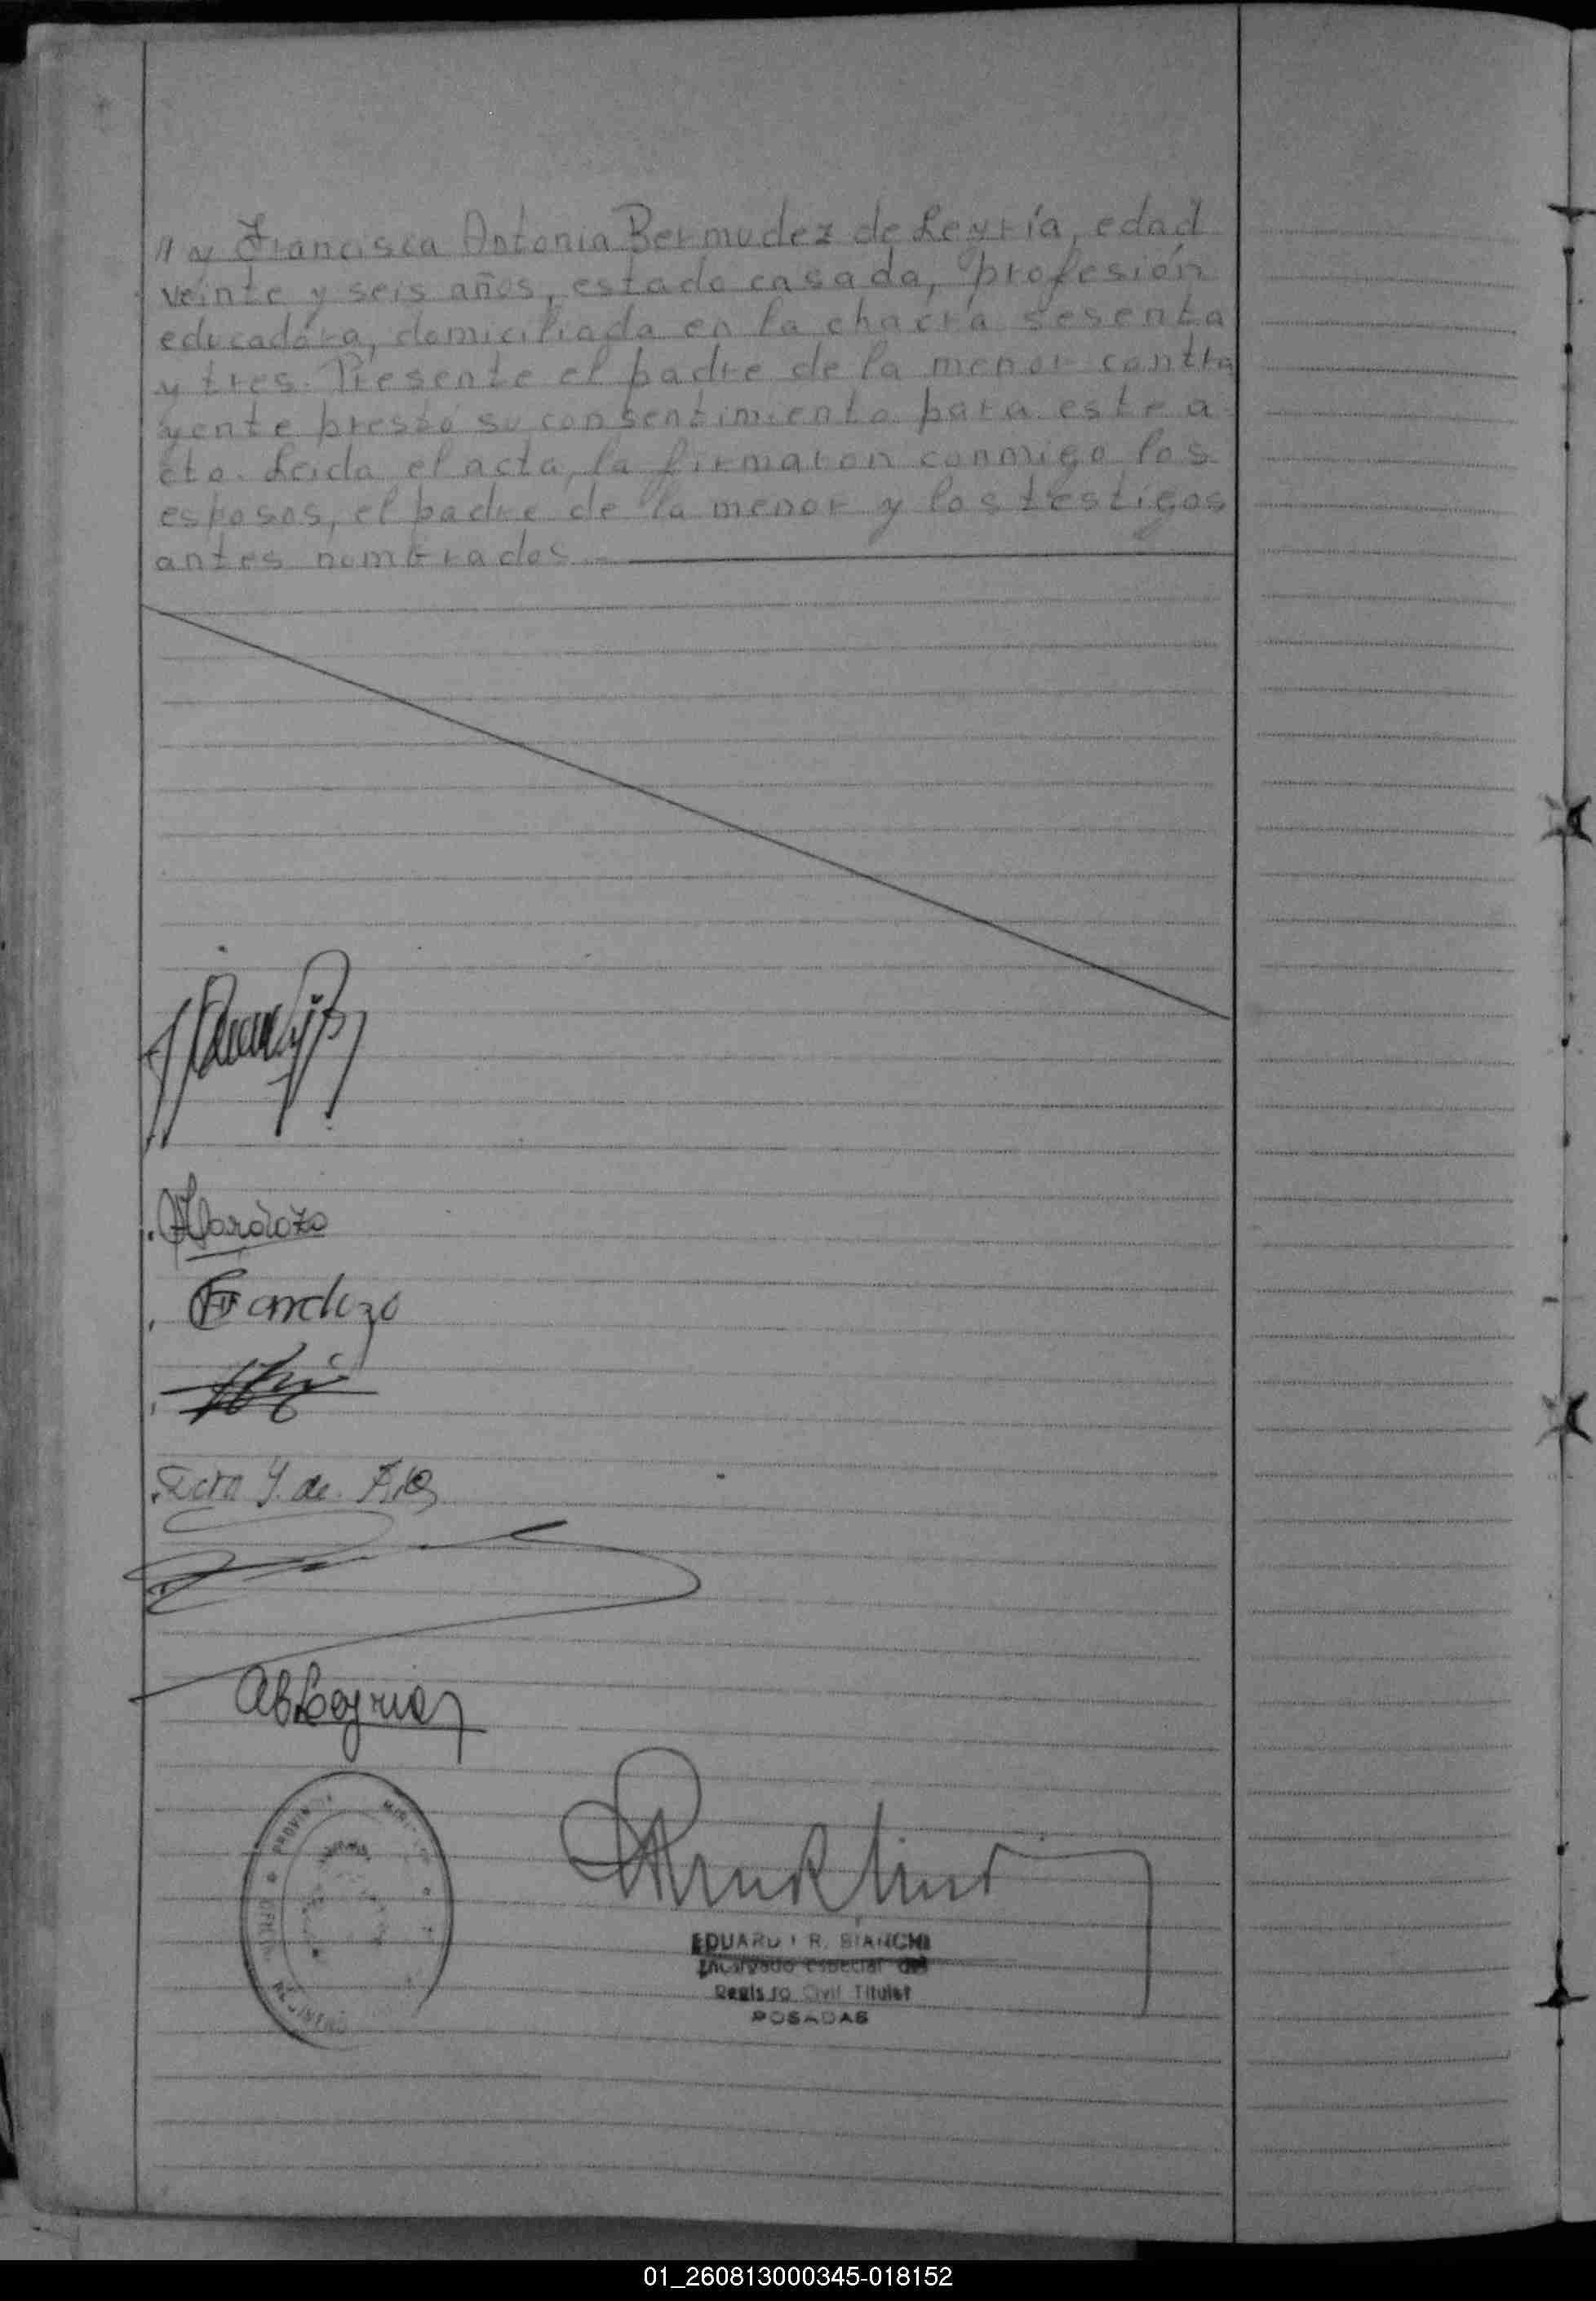 " y Francisca Antonia Bermudez de Leyría, edad
veinte y seis años, estado casada, profesión
educadora, domiciliada en la chacra sesenta
y tres. Presente el padre de la menor contra
yente prestó su consentimiento para este a
cto. Leida el acta, la firmaron conmigo los
esposos, el padre de la menor y los testigos
antes nombrados.-
Cardozo
Cardozo
Y. de
EDUARDO R. BIANCHI
Encargado Especial del
Registro Civil Titular
POSADAS
01_260813000345-018152